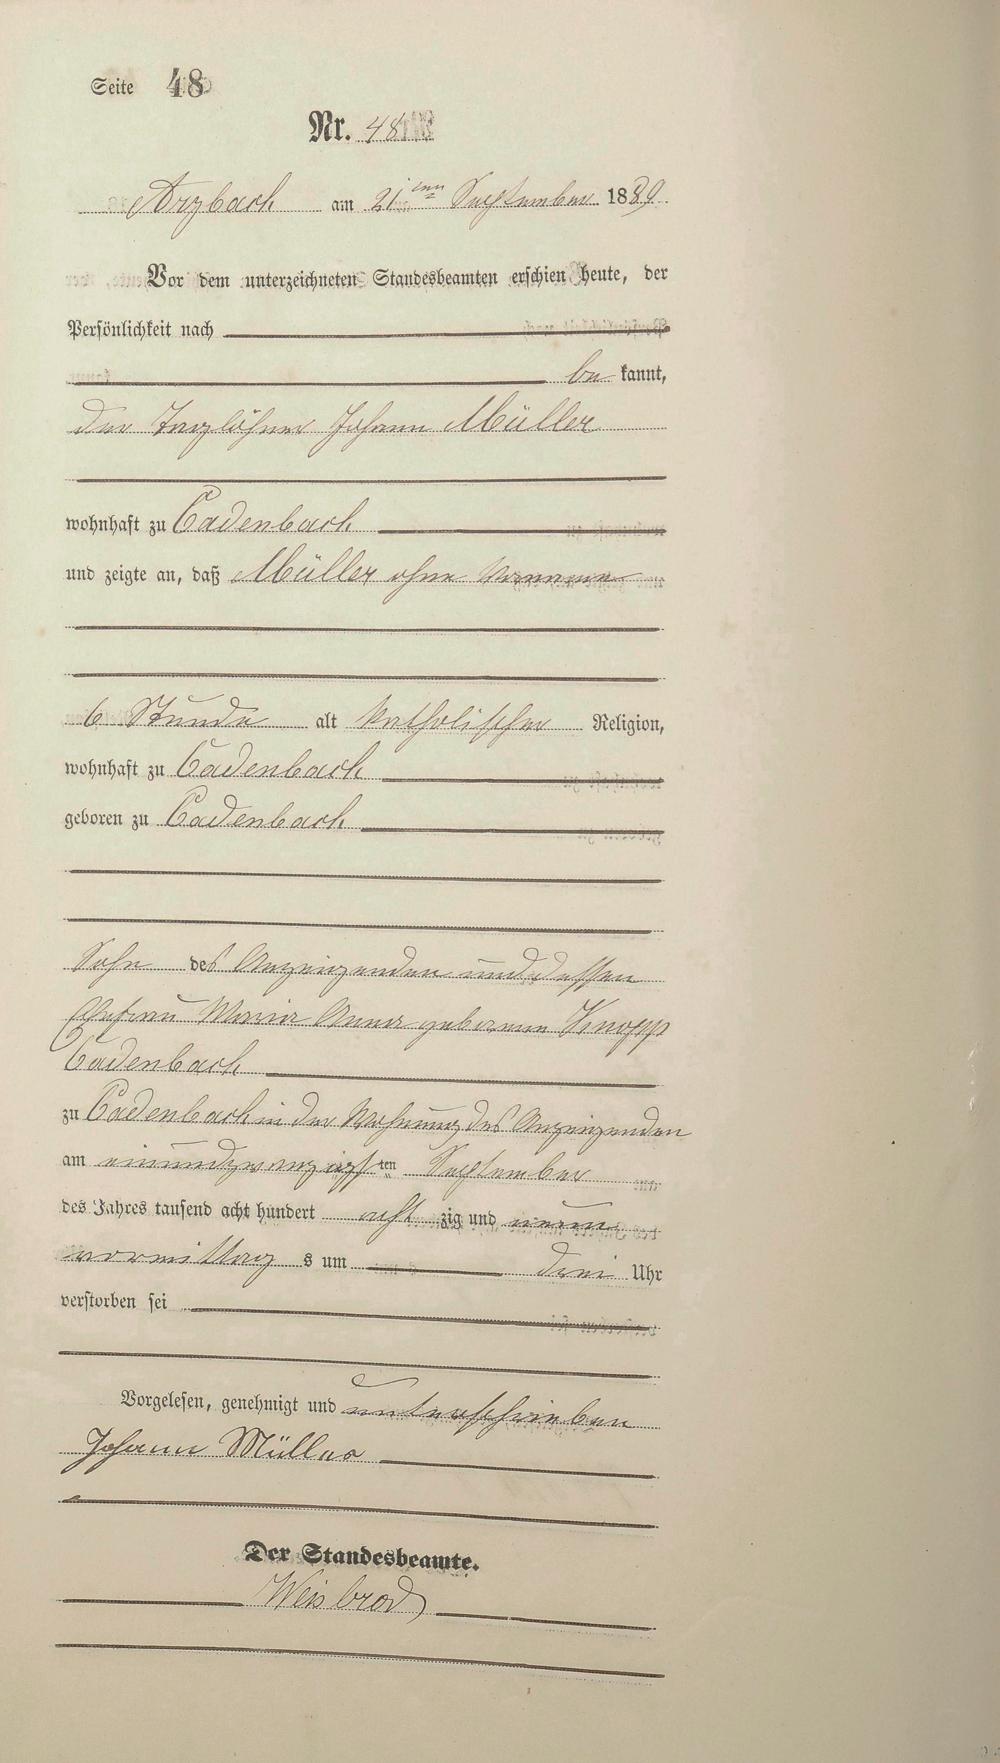 Seite 48
Nr. 48
Arzbach am 21ten September 1889.
Vor dem unterzeichneten Standesbeamten erschien heute, der
Persönlichkeit nach
be kannt,
der Taglöhner Johann Müller
wohnhaft zu Cadenbach
und zeigte an, daß Müller ohne Vorname
6 Stunde alt katholischer Religion,
wohnhaft zu Cadenbach
geboren zu Cadenbach
Sohn des Anzeigenden und dessen
Ehefrau Maria Anna geborene Knopp
Cadenbach
zu Cadenbach in der Wohnung des Anzeigenden
am einundzwanzigsten September
des Jahres tausend acht hundert acht zig und neun
vormittag s um drei Uhr
verstorben sei
Vorgelesen, genehmigt und unterschrieben
Johann Müller
Der Standesbeamte.
Weisbrod